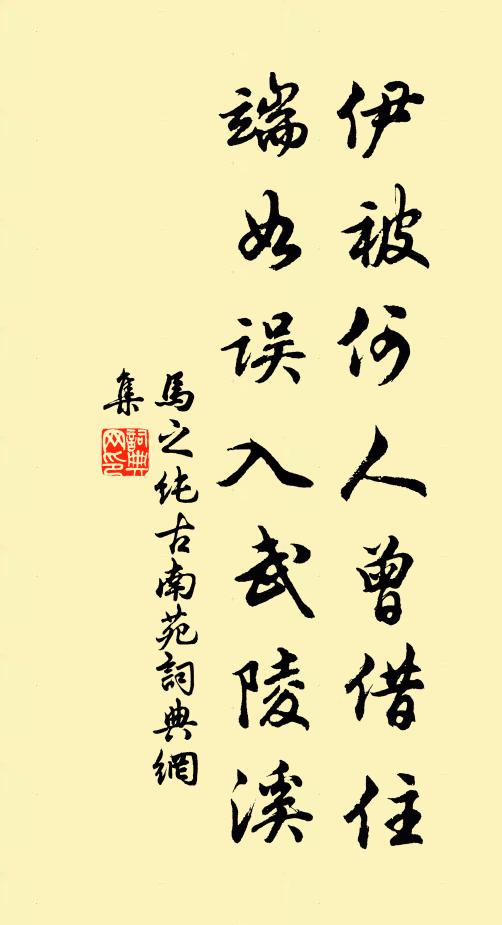 伊被何人曾借住
端如误入武陵溪
馬之纯古南苑詞典網
集
詞典网印